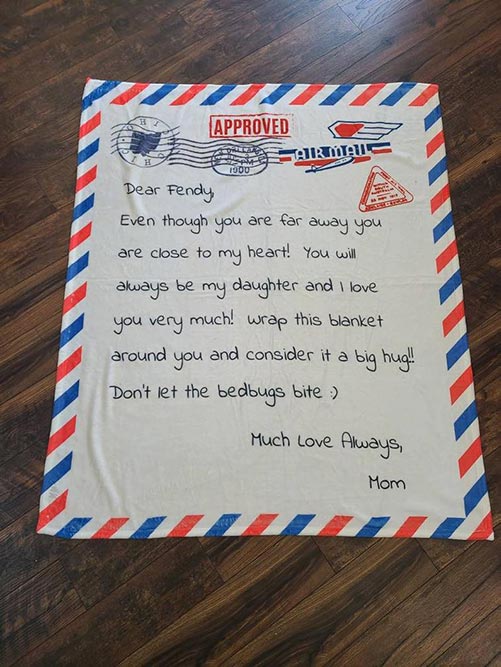 OHIO
APPROVED
AIR MAIL
1900
Dear Fendy,
Even though you are far away you
are close to my heart! You will
always be my daughter and I love
you very much! wrap this blanket
around you and consider it a big hug!!
Don't let the bedbugs bite :)
Much Love Always,
Mom